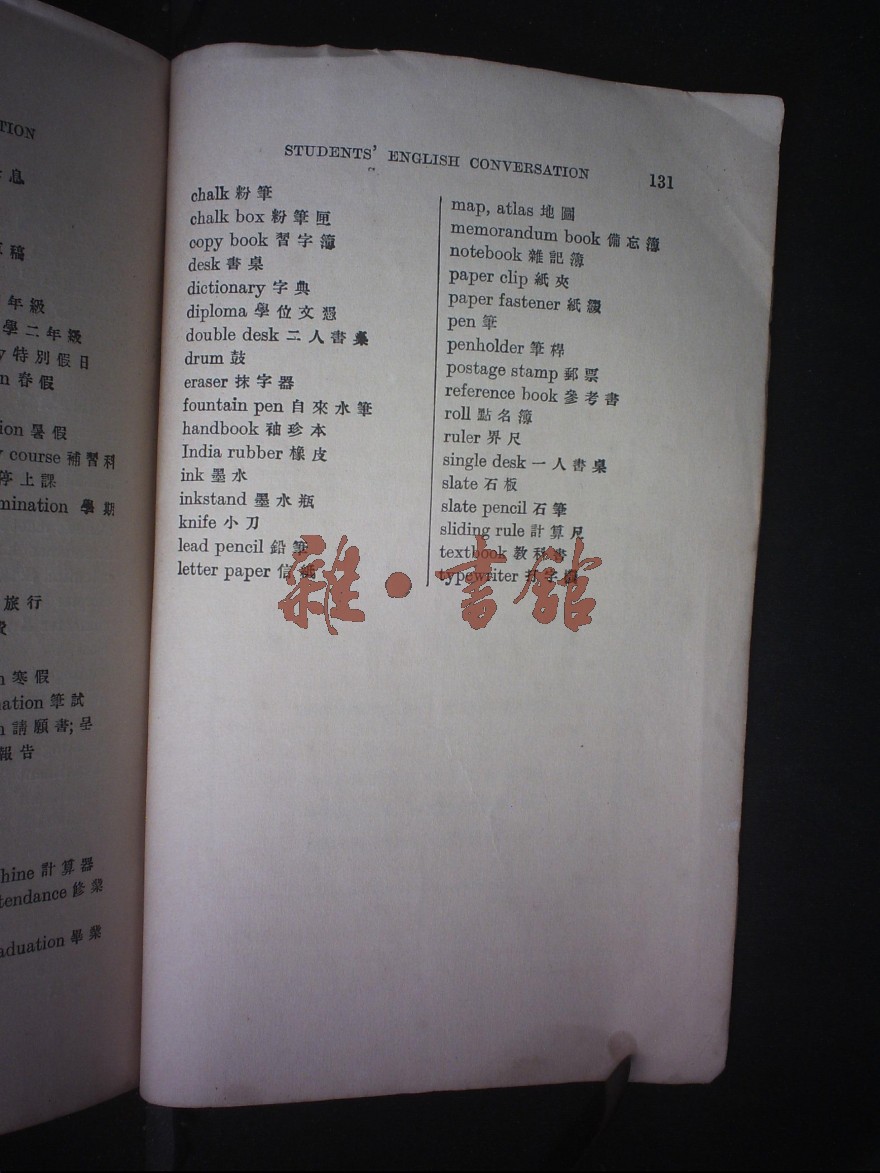 TION
息
稿
年級
學二年級
特別假日
n 春假
ion 暑假
course 補習科
停上課
mination 學期
旅行
寒假
ation 筆試
請願書; 呈
報告
hine 計算器
tendance 修業
aduation 畢業
STUDENTS' ENGLISH CONVERSATION 131
chalk 粉筆
chalk box 粉筆匣
copy book 習字簿
desk 書桌
dictionary 字典
diploma 學位文憑
double desk 二人書桌
drum 鼓
eraser 抹字器
fountain pen 自來水筆
handbook 袖珍本
India rubber 橡皮
ink 墨水
inkstand 墨水瓶
knife 小刀
lead pencil 鉛筆
letter paper 信紙
map, atlas 地圖
memorandum book 備忘簿
notebook 雜記簿
paper clip 紙夾
paper fastener 紙綴
pen 筆
penholder 筆桿
postage stamp 郵票
reference book 參考書
roll 點名簿
ruler 界尺
single desk 一人書桌
slate 石板
slate pencil 石筆
sliding rule 計算尺
textbook 教科書
typewriter 打字機
雜·書館